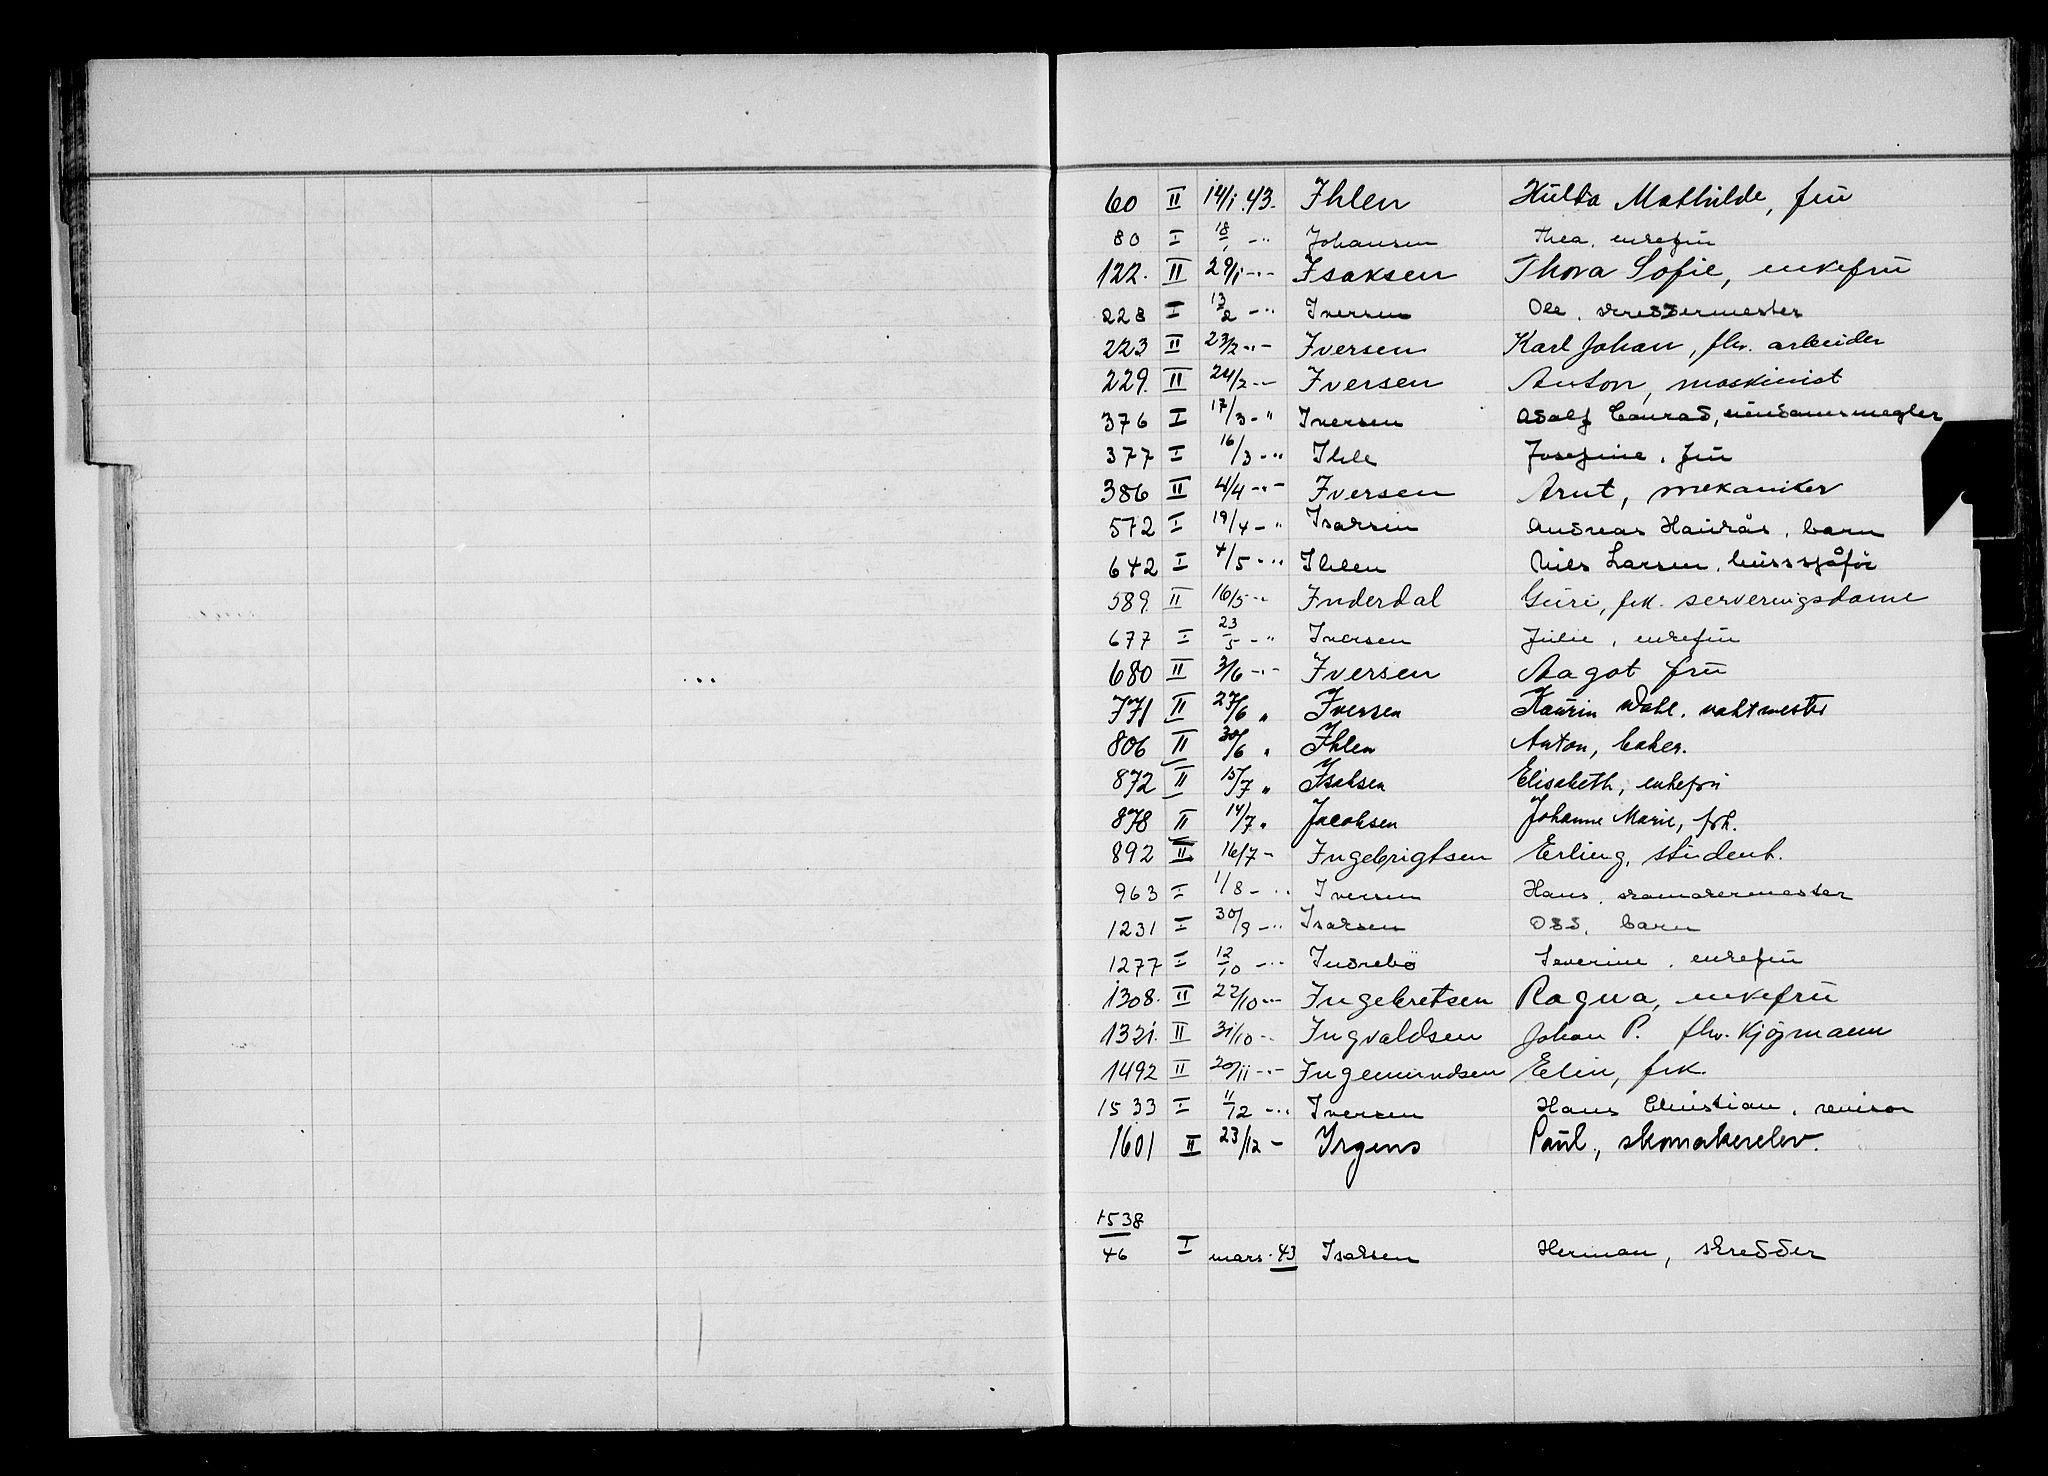 60 II 14/1.43. Ihlen Hulda Mathilde, fru
80 I 18/1 -" Johansen Thea, enkefru
122. II 29/1 -"- Isaksen Thora Sofie, enkefru
228 I 13/2 -" Iversen Ole, skreddermester
223 II 23/2 -"- Iversen Karl Johan, fhv. arbeider
229. II 24/2 -"- Iversen Anton, maskinist
376 I 17/3 -" Iversen Adolf Conrad, eiendomsmegler
377 I 16/3 -" Ihle Josefine, fru
386 II 4/4 -"- Iversen Arnt, mekaniker
572 I 19/4 -" Isaksen Andreas Haukås, barn
642 I 4/5 -" Ihlen Nils Larsen, bussjåfør
589. II 16/5 -" Inderdal Guri, frk. serveringsdame
677 I 23/5 -" Iversen Julie, enkefru
680 II 3/6 -"- Iversen Aagot fru
771 II 27/6 " Iversen Kaurin Dahl, vaktmester
806 II 30/6 " Ihlen Anton, baker.
872 II 15/7 " Isaksen Elisabeth, enkefru
878 II 14/7 " Jacobsen Johanne Marie, frk.
892 II 16/7 - Ingebrigtsen Erling, student.
963 I 1/8 -" Iversen Hans, skomakermester
1231 I 30/9 -" Isaksen Odd, barn
1277 I 12/10 -" Indrebö Severine, enkefru
1308. II 22/10 -"- Ingebretsen Ragna, enkefru
1321. II 31/10 -" Ingvaldsen Johan P. fhv. Kjøpmann
1492 II 20/11 -"- Ingemundsen Elin, frk.
1533 I 11/12 -" Iversen Hans Christian, revisor
1601 II 23/12 - Irgens Paul, skomakerelev.
1538
46 I mars. 43 Isaksen Herman, skredder